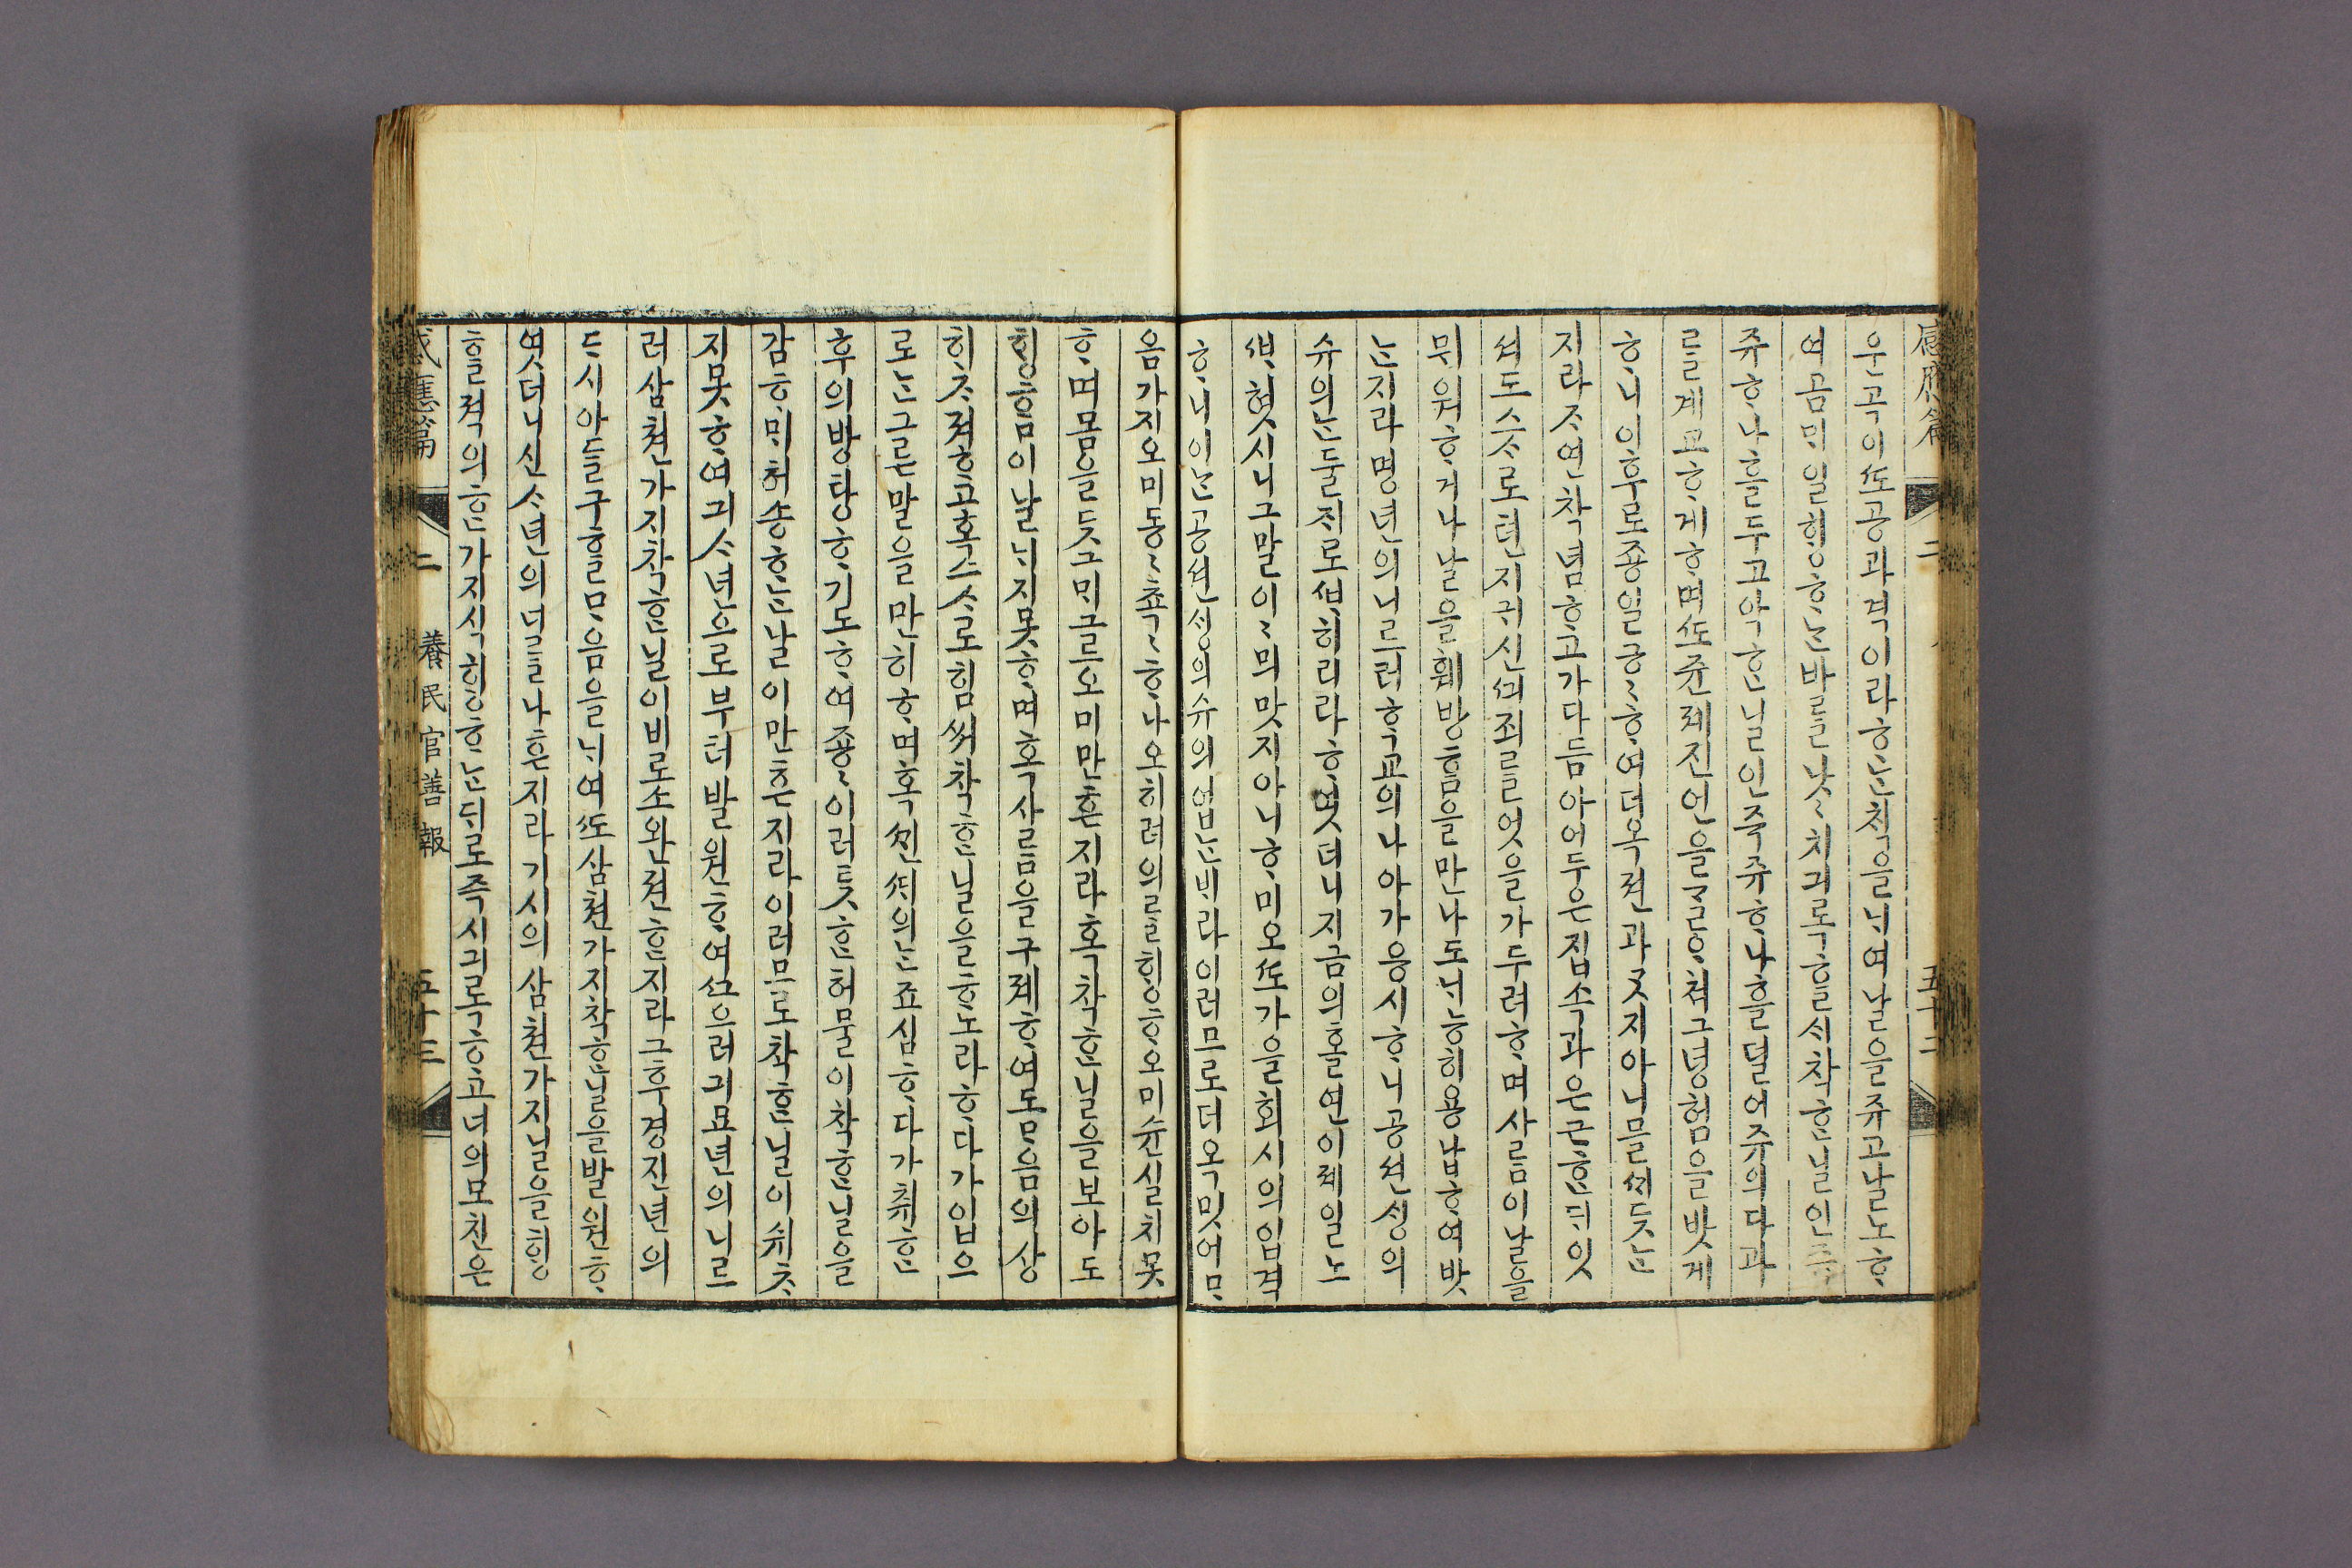 感應篇 二 五十二
운곡이ᄯᅩ공과격이라ᄒᆞᄂᆞᆫᄎᆡᆨ을ᄂᆡ여날을쥬고날노ᄒᆞ
여곰ᄆᆡ일ᄒᆡᆼᄒᆞᄂᆞᆫ바를낫〻치긔록ᄒᆞᆯᄉᆡ착ᄒᆞᆫ닐인즉
쥬ᄒᆞ나흘두고악ᄒᆞᆫ닐인즉쥬ᄒᆞ나흘덜어쥬의다과
를계교ᄒᆞ게ᄒᆞ며ᄯᅩ쥰졔진언을숑ᄒᆞ쳐그덩험을밧게
ᄒᆞ니이후로죵일긍〻ᄒᆞ여더옥젼과ᄀᆞᆺ지아니믈ᄭᆡᄃᆞᆺᄂᆞᆫ
지라ᄌᆞ연착념ᄒᆞ고가다듬아어두은집쇽과은근ᄒᆞᆫᄃᆡ잇
셔도스ᄉᆞ로텬지귀신ᄭᅴ죄를엇을가두려ᄒᆞ며사ᄅᆞᆷ이날을
뮈워ᄒᆞ거나날을훼방ᄒᆞᆷ을만나도ᄂᆡ능히용납ᄒᆞ여밧
ᄂᆞᆫ지라명년의니르러ᄒᆞᆨ교의나아가응시ᄒᆞ니공션ᄉᆡᆼ의
슈의ᄂᆞᆫ둘ᄌᆡ로ᄲᅡ히리라ᄒᆞ엿더니지금의홀연이졔일노
ᄲᅡ혓시니그말이〻믜맛지아니ᄒᆞ미오ᄯᅩ가을회시의입격
ᄒᆞ니이ᄂᆞᆫ공션ᄉᆡᆼ의슈의업ᄂᆞᆫᄇᆡ라이러므로더옥밋어ᄆᆞ
음가지오미동〻쵹〻ᄒᆞ나오히려의를ᄒᆡᆼᄒᆞ오미슌실치못
ᄒᆞ며몸을닷그미그르오미만흔지라혹착ᄒᆞᆫ닐을보아도
ᄒᆡᆼᄒᆞᆷ이날ᄂᆡ지못ᄒᆞ며혹사ᄅᆞᆷ을구졔ᄒᆞ여도ᄆᆞ음의샹
ᄒᆡ ᄌᆞ져ᄒᆞ고혹스ᄉᆞ로힘써착ᄒᆞᆫ닐을ᄒᆞ노라ᄒᆞ다가입으
로ᄂᆞᆫ그른말을만히ᄒᆞ며혹ᄭᆡᆫᄯᆡ의ᄂᆞᆫ죠심ᄒᆞ다가취ᄒᆞᆫ
후의방탕ᄒᆞ기도ᄒᆞ여죵〻이러ᄐᆞᆺᄒᆞᆫ허물이착ᄒᆞᆫ닐을
감ᄒᆞᄆᆡ허숑ᄒᆞᄂᆞᆫ날이만흔지라이러므로착ᄒᆞᆫ닐이ᄎᆡᄎᆞ
지못ᄒᆞ여긔ᄉᆞ년으로부터발원ᄒᆞ여십으러긔묘년의니르
러삼쳔가지착ᄒᆞᆫ닐이비로소완젼ᄒᆞᆫ지라그후경진년의
드시아들구ᄒᆞᆯᄆᆞ음을ᄂᆡ여ᄯᅩ삼쳔가지착ᄒᆞᆫ닐을발원ᄒᆞ
엿더니신ᄉᆞ년의너를나흔지라기시의삼쳔가지닐을ᄒᆡᆼ
ᄒᆞᆯ젹의ᄒᆞᆫ가지식ᄒᆡᆼᄒᆞᄂᆞᆫᄃᆡ로즉시긔록ᄒᆞ고너의모친은
感應篇 二 養民官善報 五十三